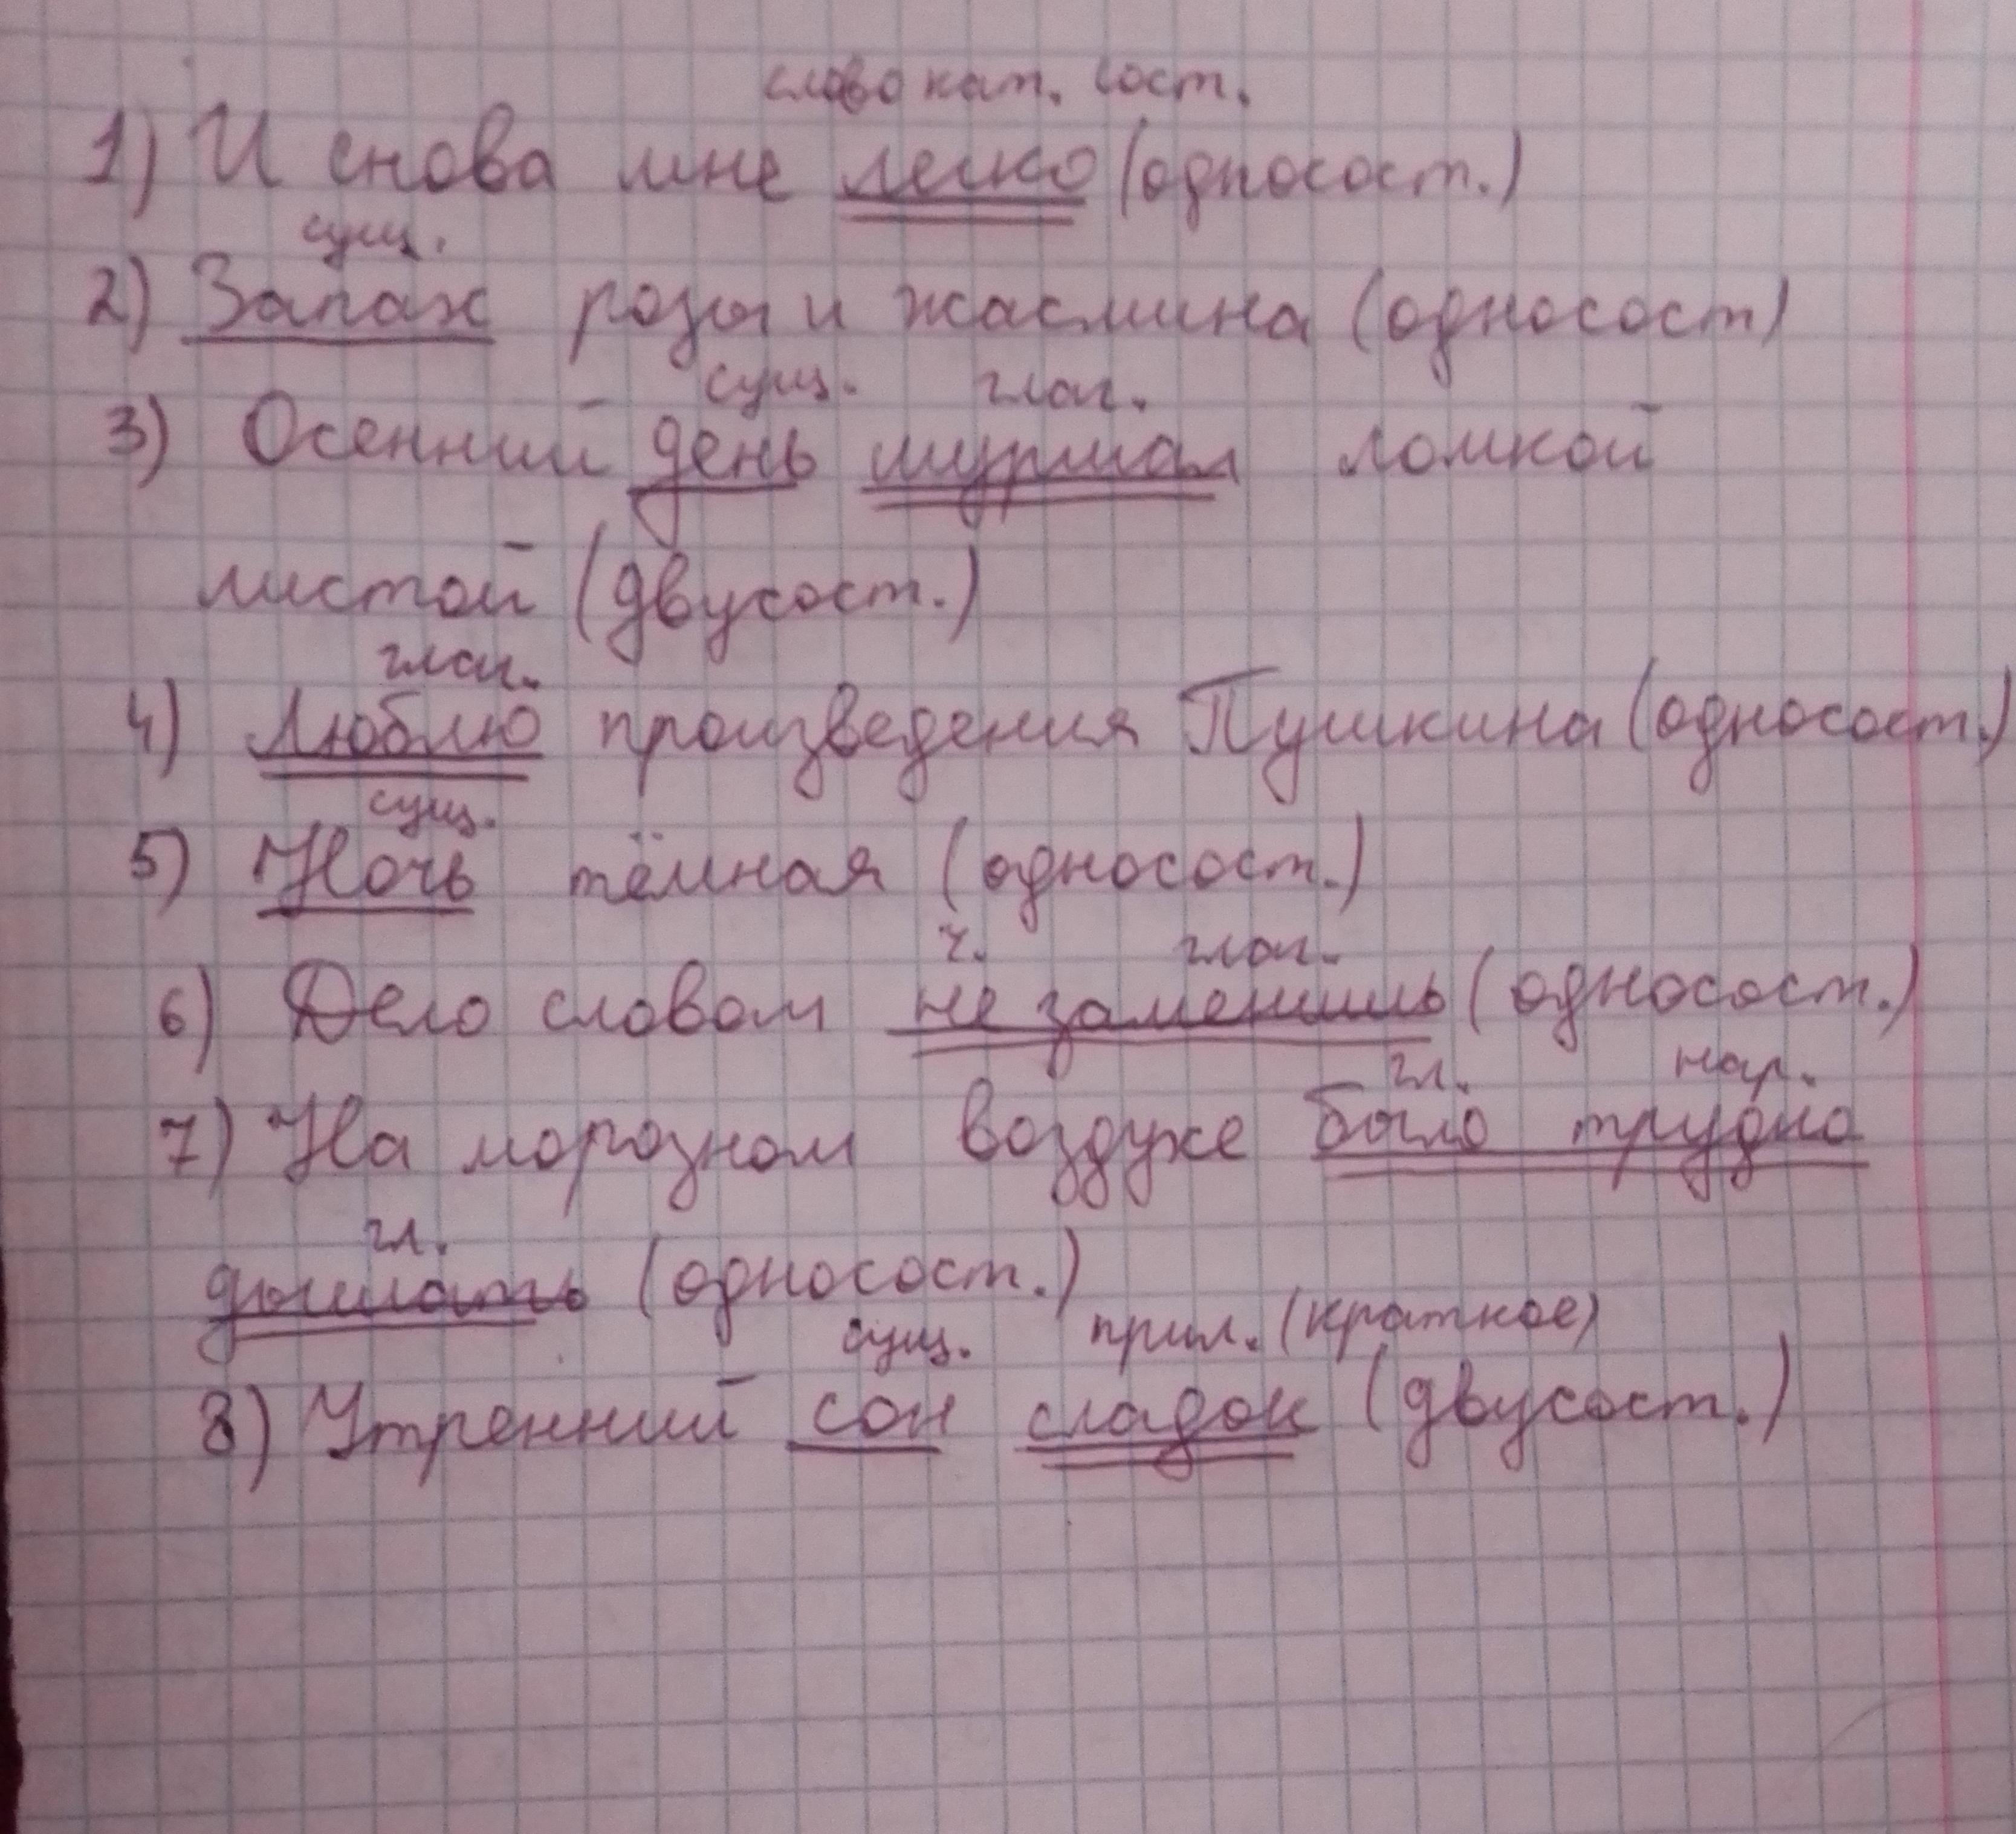 слово кат. сост.
1) И снова мне легко (односост.)
сущ.
2) Запах розы и жасмина (односост)
сущ. глаг.
3) Осенний день шуршал ломкой
листой (двусост.)
глаг.
4) Люблю произведения Пушкина (односост.)
сущ.
5) Ночь тёмная (односост.)
ч. глаг.
6) Дело словом не заменишь (односост.)
гл. нар.
7) На морозном воздухе было трудно
гл.
дышать (односост.)
сущ. прил. (краткое)
8) Утренний сон сладок (двусост.)